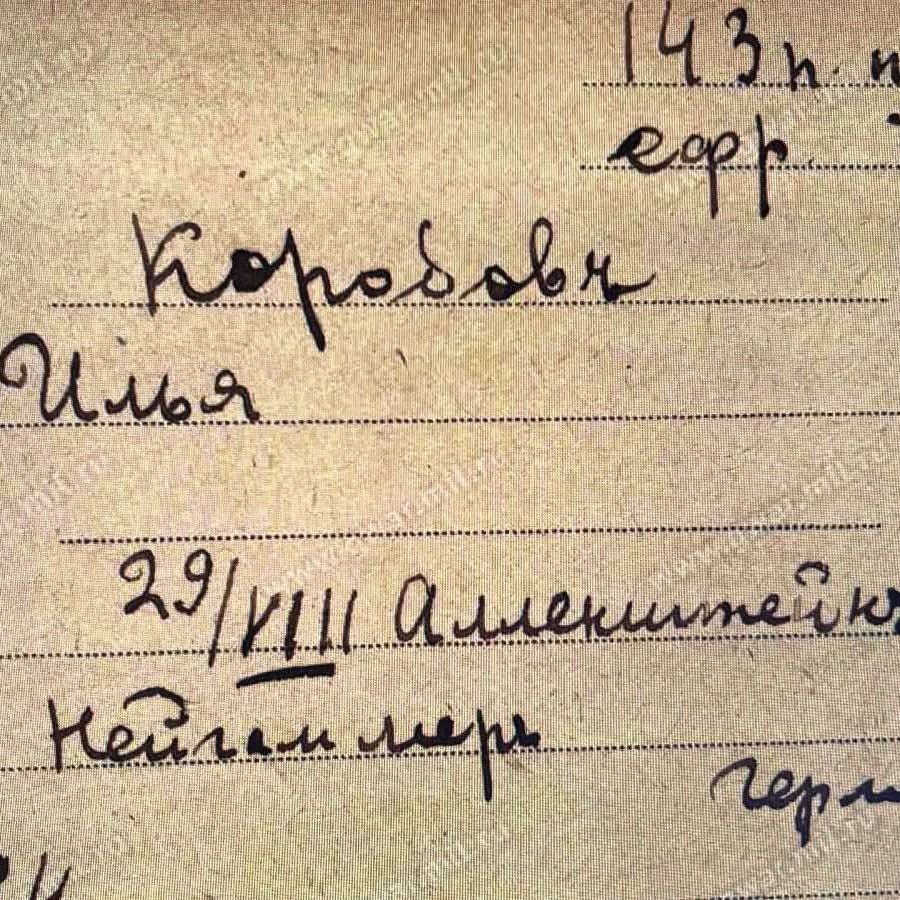 143 п. п
ефр.
Коробовъ
Илья
29/VIII Алленштейнъ
Нейгаммеръ
герм